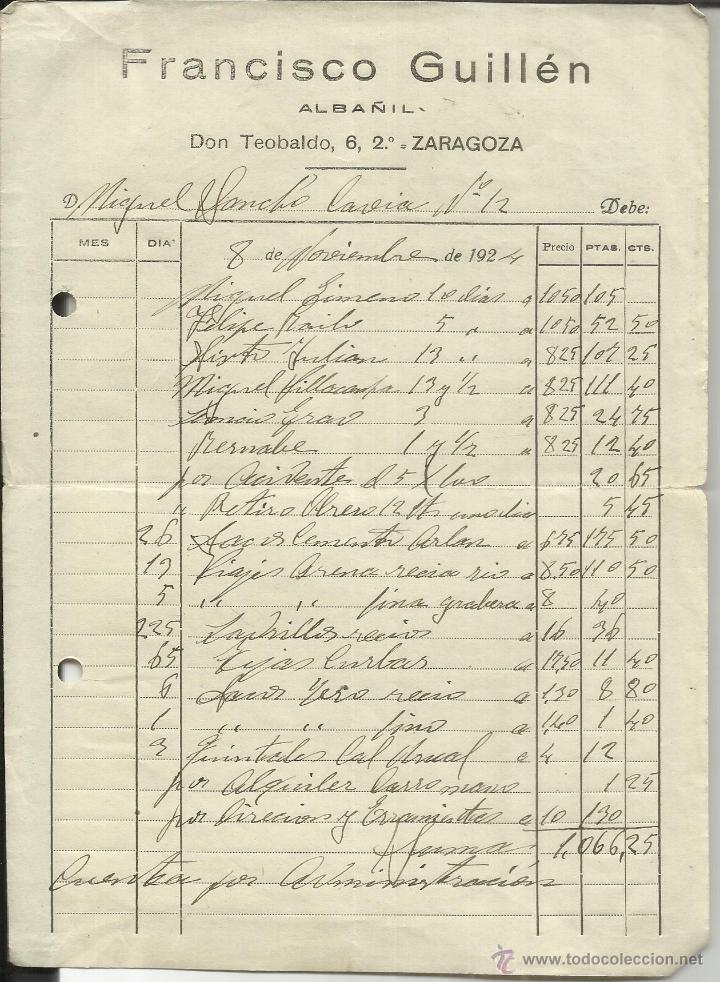 Francisco Guillén
ALBAÑIL
Don Teobaldo, 6, 2.º = ZARAGOZA
D. Miguel Sancho Cavia Nº 12 Debe:
MES DIA Precio PTAS. CTS.
8 de Noviembre de 1924
Miguel Gimeno 10 dias a 10 50 105
Felipe 5 " a 10 50 52 50
Julian 13 " a 8 25 107 25
Miguel Villacampa 13 y 1/2 a 8 25 111 40
Grao 3 a 8 25 24 75
Bernabe 1 y 1/2 a 8 25 12 40
por Acidentes el 5 X 20 65
" Retiro Obrero 5 45
26 Sacos Cemento Arlan a 6,75 175 50
13 Viajes Arena recia rio a 8,50 110 50
5 " " fina grabera a 8 40
225 Ladrillos recios a 16 36
65 Tejas Curbas a 17,50 11 40
6 Sacos Yeso recio a 1,30 8 80
1 " " fino a 1,40 1 40
3 Quintales Cal Usual a 4 12
por Alquiler Carro mano 1 25
por Direcion y Erramientas a 10 130
Suma 1,066,25
Cuenta por Administración
www.todocoleccion.net